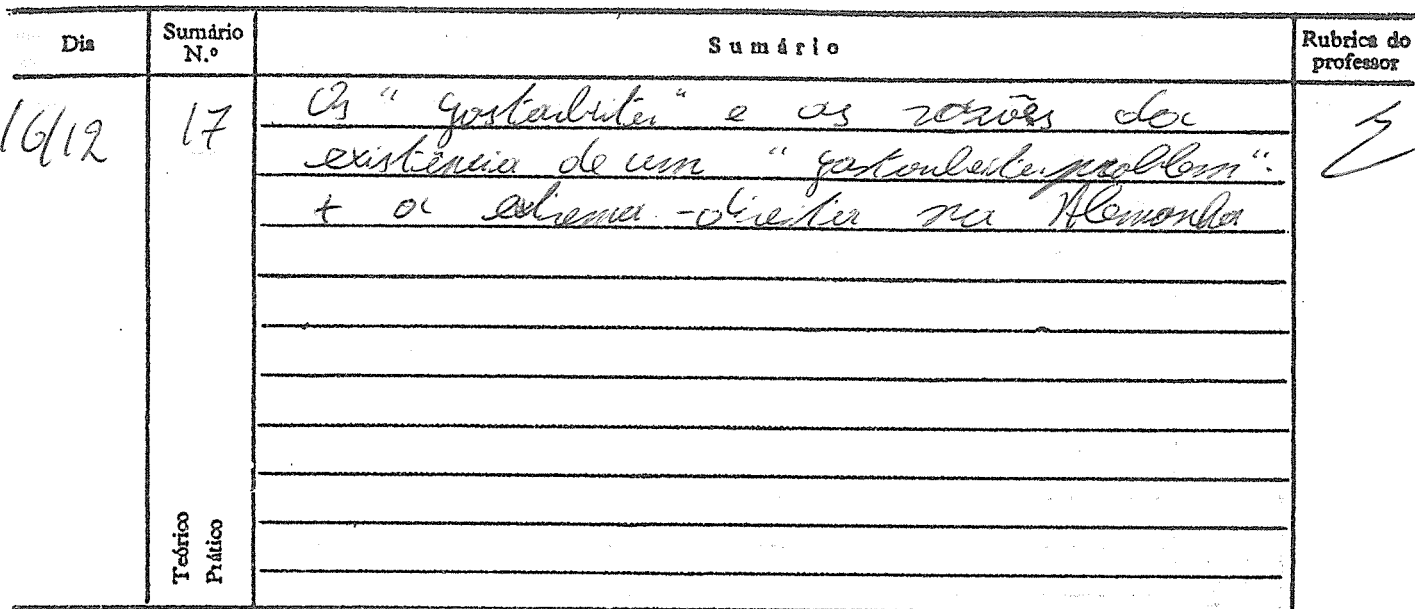 Dia
Sumário N.º
Sumário
Rubrica do professor
16/12
17
Os "gastarbeiter" e as razões da
existência de um "gastarbeiterproblem".
+ a extrema-direita na Alemanha
Teórico
Prático